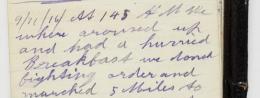 9/11/14 At 145 A M We
where aroused up
and had a hurried
Breakfast we doned
fighting order and
marched 5 Miles to